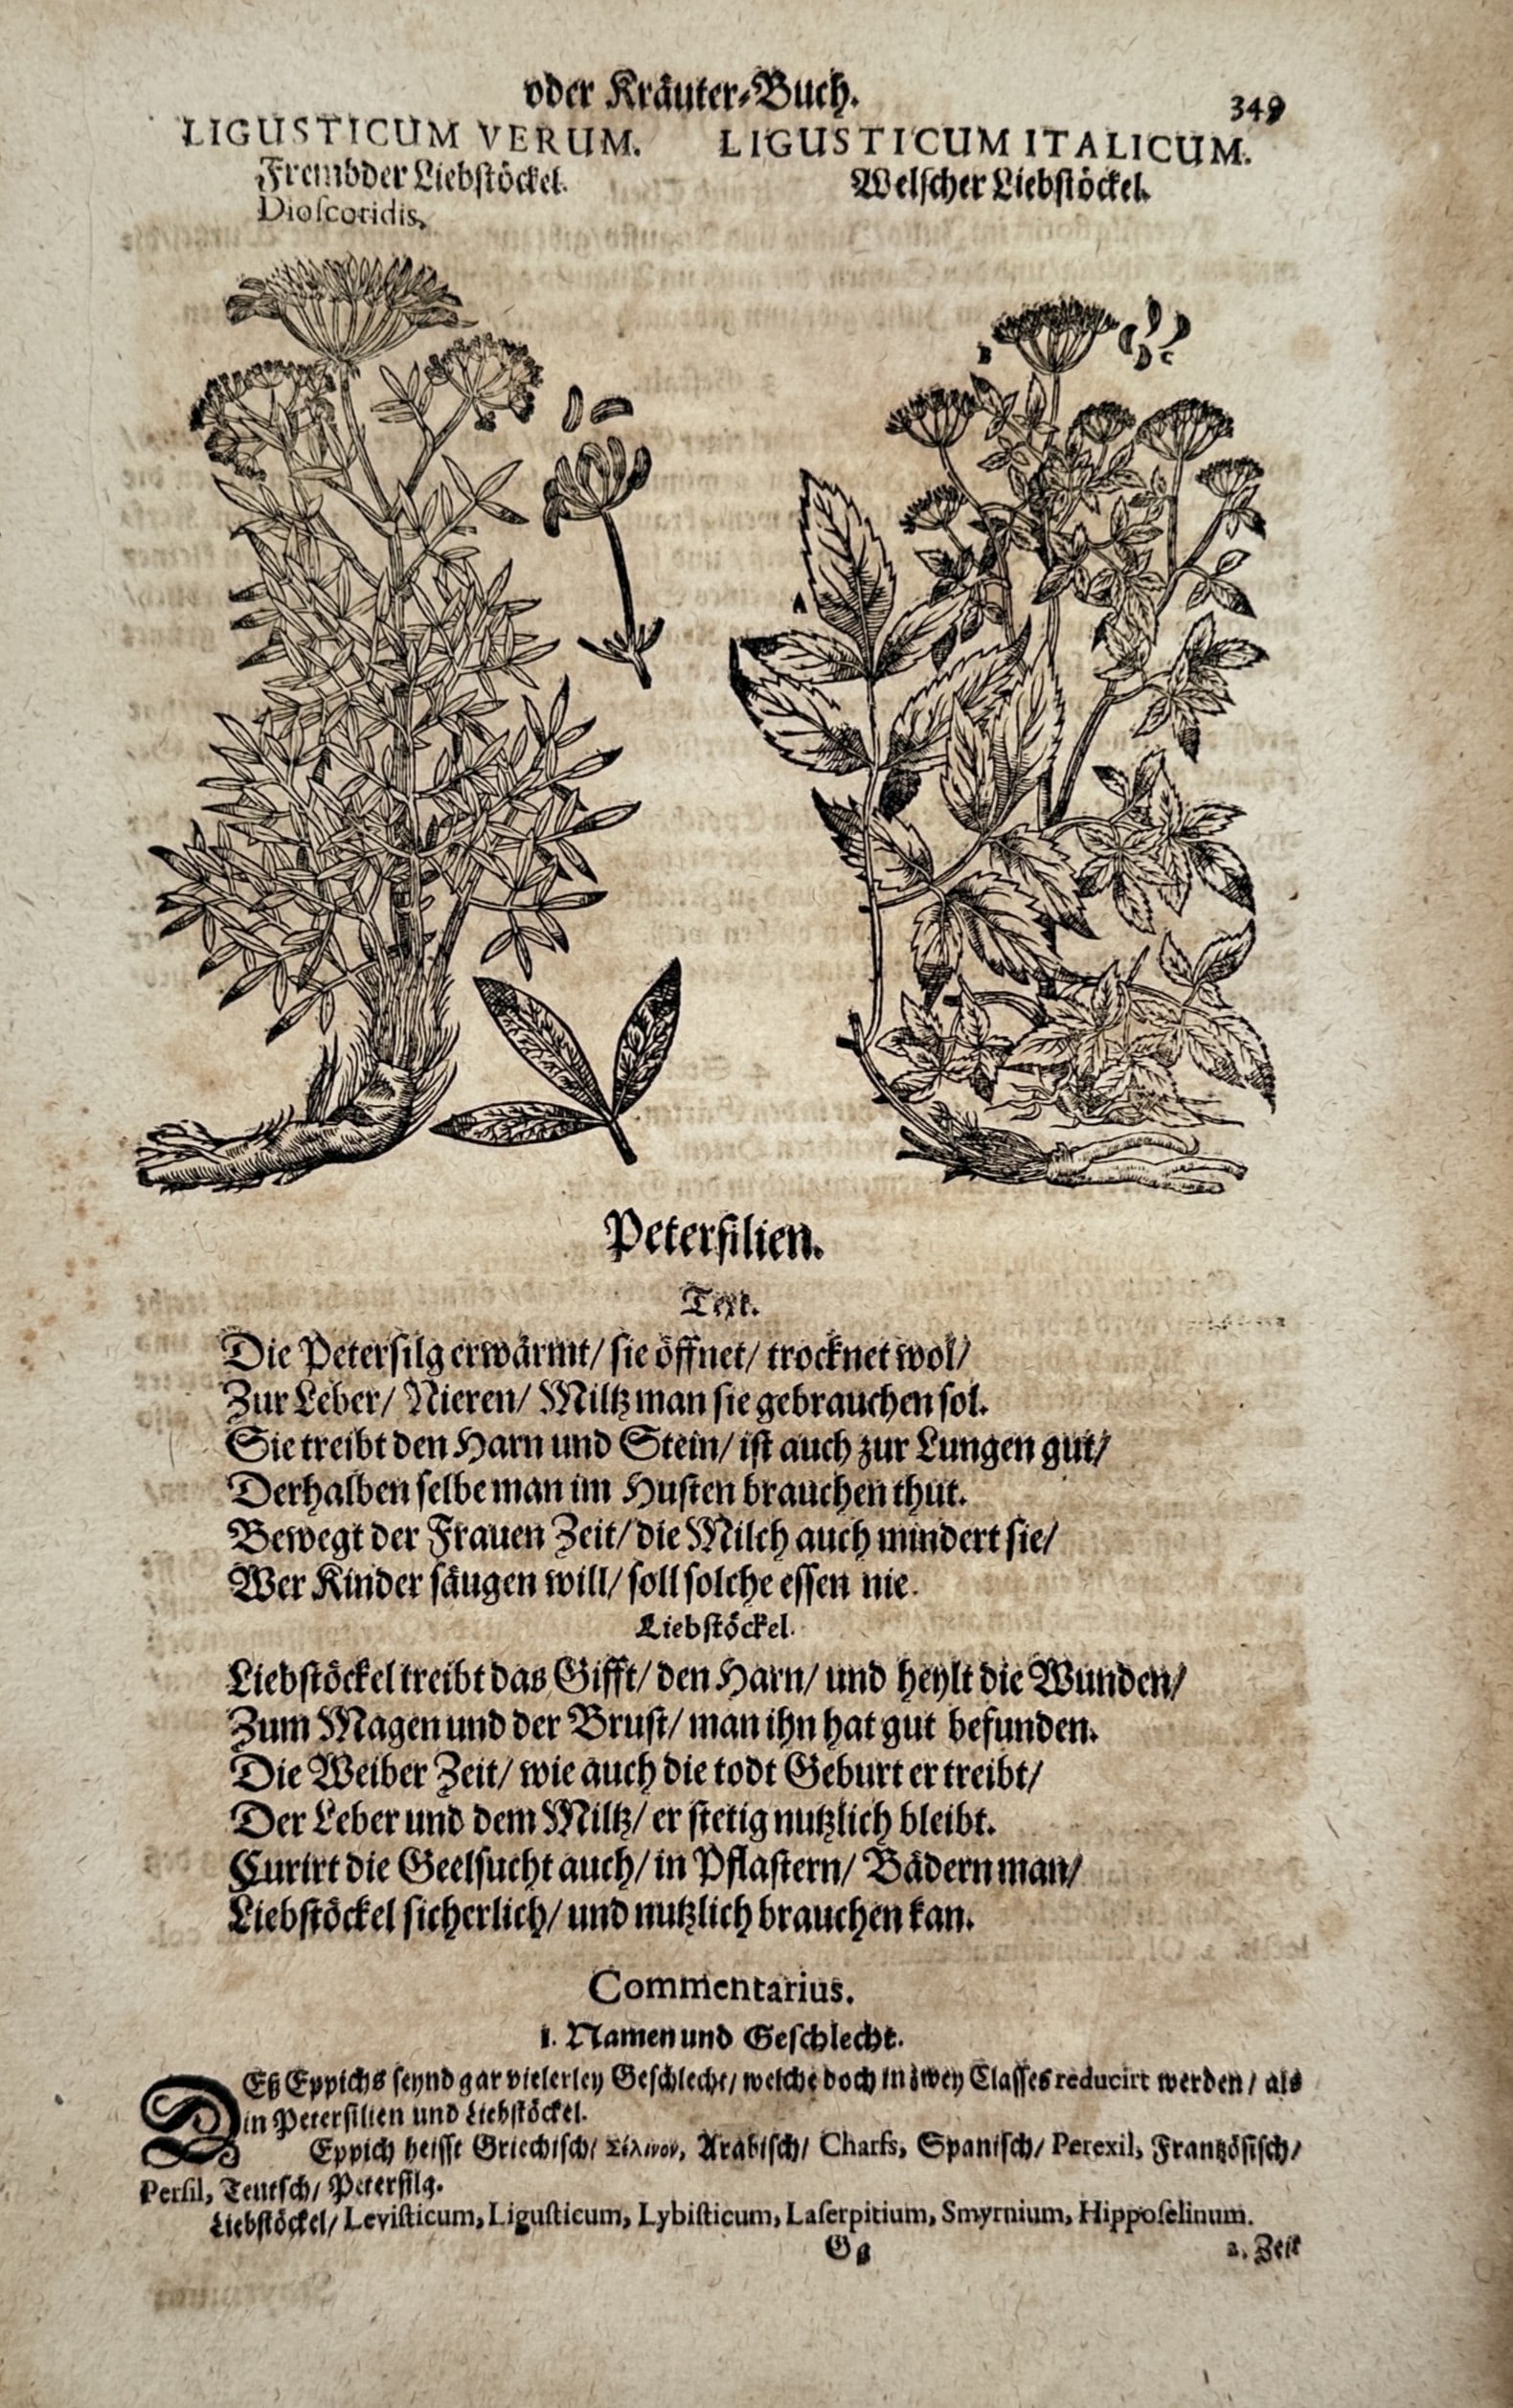 oder Kräuter-Buch.
349
LIGUSTICUM VERUM.
Frembder Liebstöckel.
Dioscoridis.
LIGUSTICUM ITALICUM.
Welscher Liebstöckel.
B
C
A
Petersilien.
Text.
Die Petersilg erwärmt/ sie öffnet/ trocknet wol/
Zur Leber/ Nieren/ Miltz man sie gebrauchen sol.
Sie treibt den Harn und Stein/ ist auch zur Lungen gut/
Derhalben selbe man im Husten brauchen thut.
Bewegt der Frauen Zeit/ die Milch auch mindert sie/
Wer Kinder säugen will/ soll solche essen nie.
Liebstöckel.
Liebstöckel treibt das Gifft/ den Harn/ und heylt die Wunden/
Zum Magen und der Brust/ man ihn hat gut befunden.
Die Weiber Zeit/ wie auch die todt Geburt er treibt/
Der Leber und dem Miltz/ er stetig nutzlich bleibt.
Curirt die Geelsucht auch/ in Pflastern/ Bädern man/
Liebstöckel sicherlich/ und nutzlich brauchen kan.
Commentarius.
1. Namen und Geschlecht.
DEß Eppichs seynd gar vielerley Geschlecht/ welche doch in zwey Classes reducirt werden/ als
in Petersilien und Liebstöckel.
Eppich heisst Griechisch/ Σέλινον, Arabisch/ Charfs, Spanisch/ Perexil, Frantzösisch/
Persil, Teutsch/ Petersilg.
Liebstöckel/ Levisticum, Ligusticum, Lybisticum, Laserpitium, Smyrnium, Hipposelinum.
Gg
2. Zeit